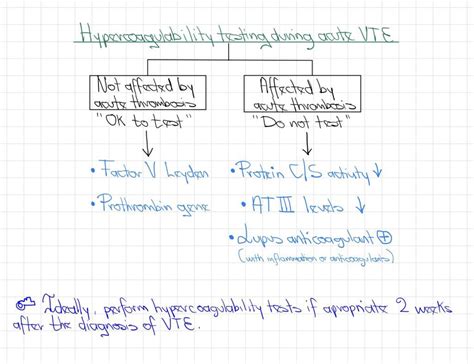 Hypercoagulability testing during acute VTE
Not affected by
acute thrombosis
"OK to test"
Affected by
acute thrombosis
"Do not test"
• Factor V Leyden
• Prothrombin gene
• Protein C/S activity ↓
• AT III levels ↓
• Lupus anticoagulant ⊕
(with inflammation or anticoagulants)
Ideally, perform hypercoagulability tests if apropriate 2 weeks
after the diagnosis of VTE.